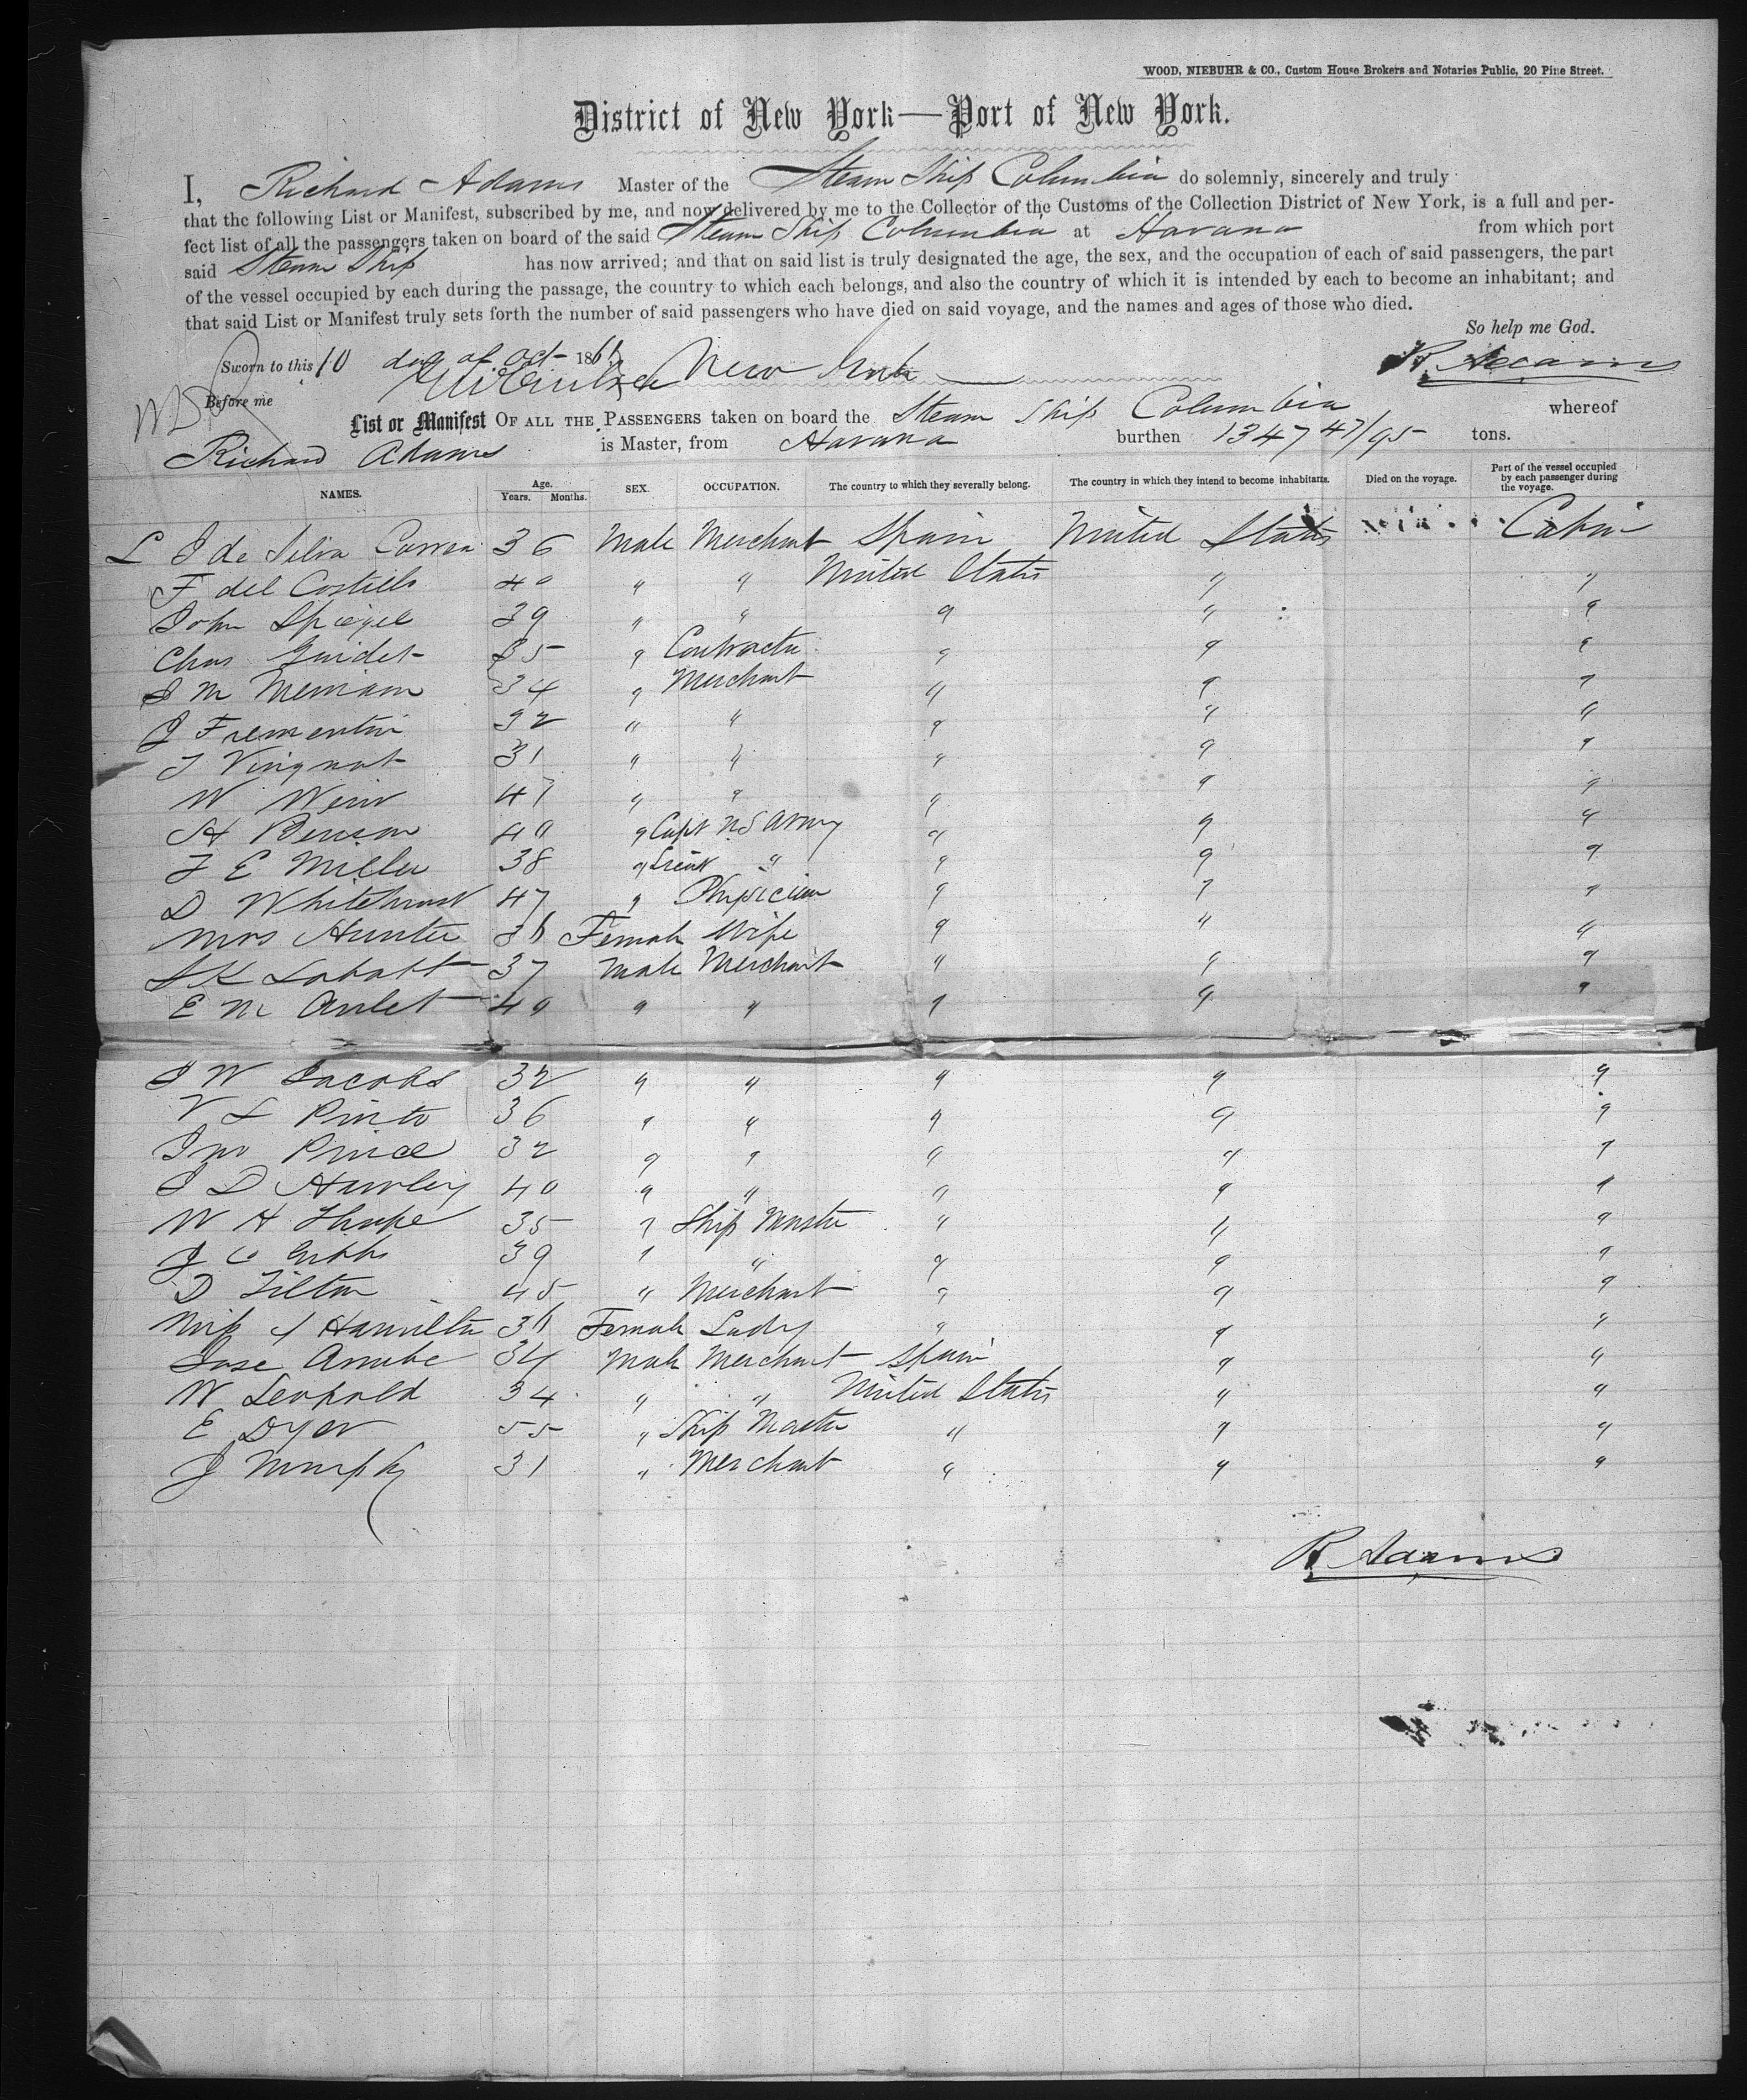 WOOD, NIEBUHR & CO., Custom House Brokers and Notaries Public, 20 Pine Street.
District of New York—Port of New York.
I, Richard Adams Master of the Steam Ship Columbia do solemnly, sincerely and truly
that the following List or Manifest, subscribed by me, and now delivered by me to the Collector of the Customs of the Collection District of New York, is a full and per-
fect list of all the passengers taken on board of the said Steam Ship Columbia at Havana from which port
said Steam Ship has now arrived; and that on said list is truly designated the age, the sex, and the occupation of each of said passengers, the part
of the vessel occupied by each during the passage, the country to which each belongs, and also the country of which it is intended by each to become an inhabitant; and
that said List or Manifest truly sets forth the number of said passengers who have died on said voyage, and the names and ages of those who died.
So help me God.
Sworn to this 10 day of Oct 186 New York R Adams
Before me
List or Manifest OF ALL THE PASSENGERS taken on board the Steam Ship Columbia whereof
Richard Adams is Master, from Havana burthen 1347 47/95 tons.
NAMES. Age. Years. Months. SEX. OCCUPATION. The country to which they severally belong. The country in which they intend to become inhabitants. Died on the voyage. Part of the vessel occupied by each passenger during the voyage.
L J de Silva Correa 36 Male Merchant Spain United States Cabin
F del Costillo 40 " " United States " "
John Spiegel 39 " " " " "
Chas Guidet 35 " Contractor " " "
J M Merriam 34 " Merchant " " "
J Frementin 32 " " " " "
J Vingnot 31 " " " " "
W Weir 47 " " " " "
H Benson 40 " Capt U S Army " " "
J E Miller 38 " Lieut " " " "
D Whitehurst 47 " Physician " " "
Mrs Hunter Female Wife " " "
S K Labatt 37 Male Merchant " " "
E M Anlet 40 " " " " "
J W Jacobs 32 " " " " "
V L Pinto 36 " " " " "
Jno Prince 32 " " " " "
J D Hawley 40 " " " " "
W H Thorpe 35 " Ship Master " " "
J C Gibbs 39 " " " " "
D Tilton 45 " Merchant " " "
Miss J Hamilton Female Lady " " "
Jose Arrube 34 Male Merchant Spain " "
W Leopold 34 " " United States " "
E Dyer 55 " Ship Master " " "
J Murphy 31 " Merchant " " "
R Adams